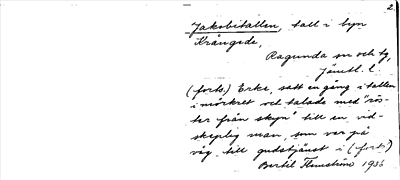 2.
Jakobitallen, tall i byn
Krångede,
Ragunda sn och tg,
Jämtl. l.
(forts.) Erke, satt en gång i tallen
i mörkret och talade med "rös-
ter från skyn" till en vid-
skeplig man, som var på
väg till gudstjänst i (forts.)
Bertil Flemström 1936